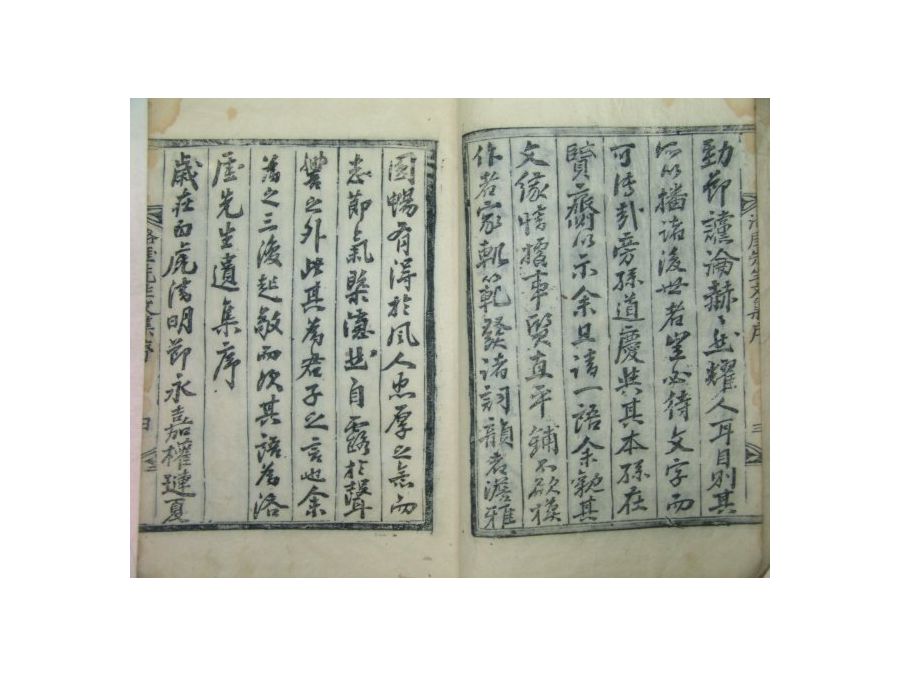 勁節讜論赫〻然耀人耳目則其
所以播諸後世者豈必待文字而
可傳哉旁孫道慶與其本孫在
賢齎以示余且請一語余觀其
文緣情據事質直平鋪不欲模
作者家軌範發諸詞韻者澹雅
圓暢有得於風人忠厚之意而
志節氣槩凛然自露於聲
響之外此其爲君子之言也余
讀之三復起敬而次其語爲洛
厓先生遺集序
歲在 虎淸明節永嘉權璉夏
洛厓先生文集序
三
洛厓先生文集序
四